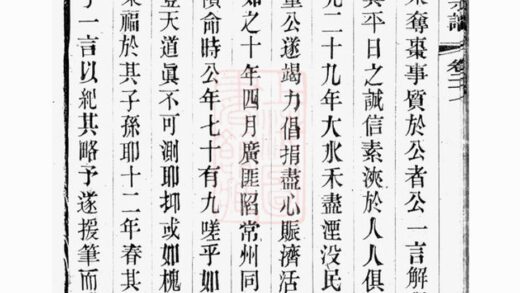 譜 卷二
奪棗事質於公者公一言解
平日之誠信素浹於人人俱
光二十九年大水禾盡湮没民
公遂竭力倡捐盡心賑濟活
如之十年四月廣匪陷常州同
殞命時公年七十有九嗟乎如
豈天道眞不可測耶抑或如槐
福於其子孫耶十二年春其
一言以紀其略予遂援筆而